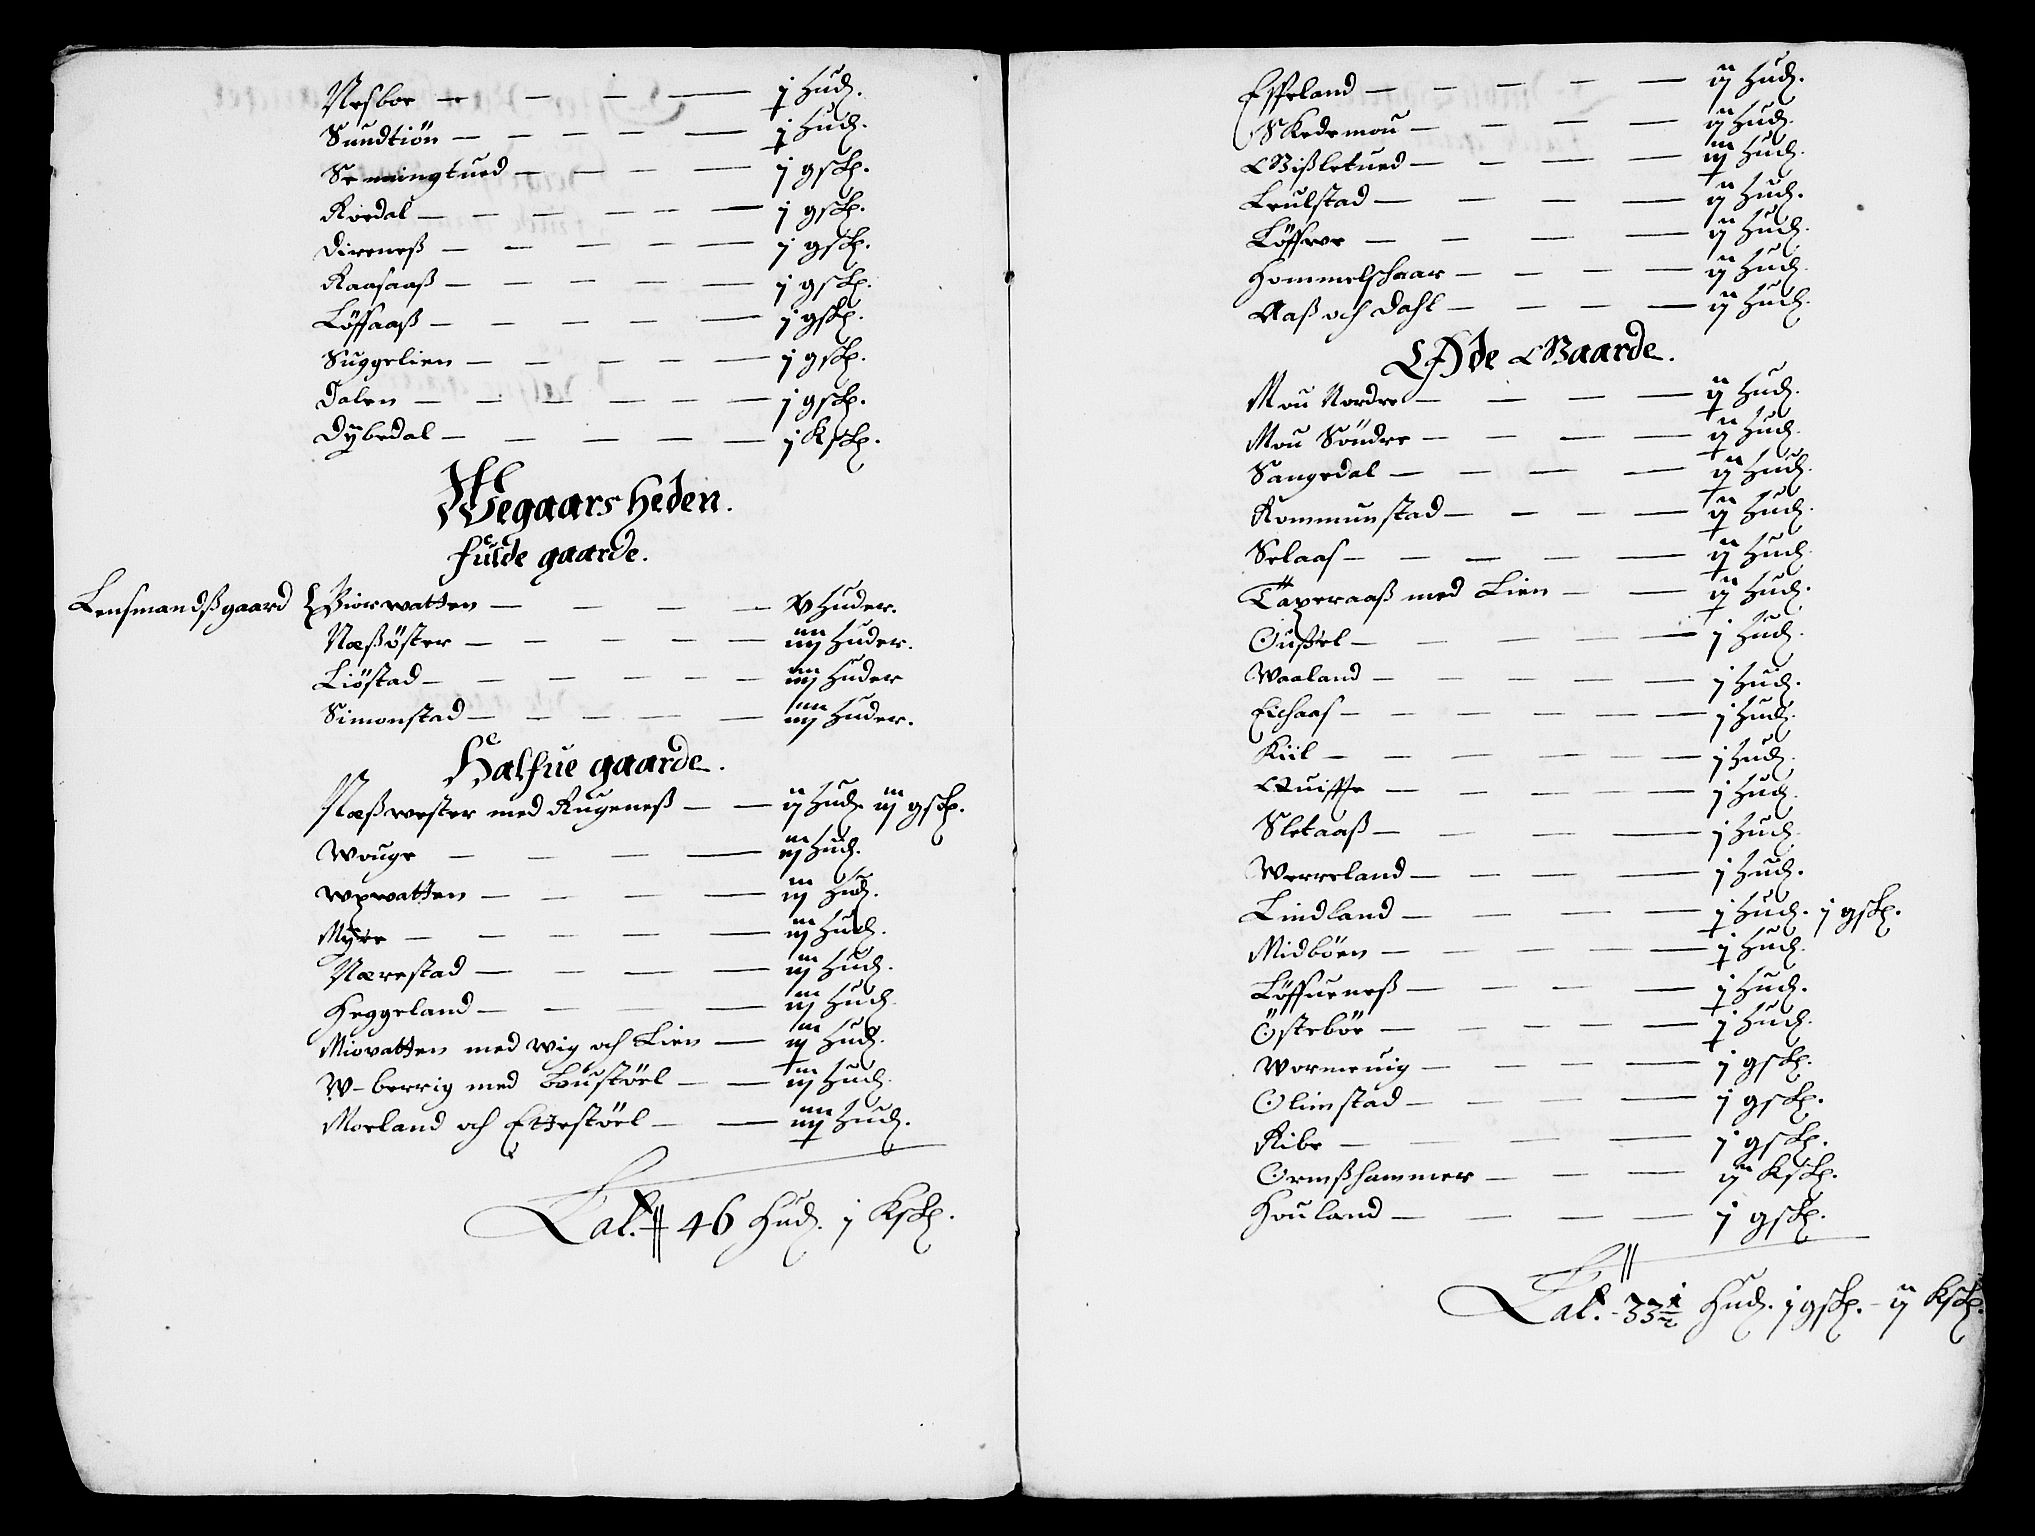 Nesboe — j Hud.
Sundtiön — j Hud.
Semmingtued — j gskp.
Roedal — j gskp.
Direneß — j gskp.
Raasaaß — j gskp.
Löffaaß — j gskp.
Suggelien — j gskp.
Dalen — j gskp.
Dybedal — j Kskp.
Wegaarsheden.
fulde gaarde.
Lensmandßgaard { Biorwatten — v Huder.
Næßöster — iiij Huder.
Liöstad — iiij Huder
Simonstad — iiij Huder.
Halfue gaarde.
Næßwester med Rugeneß — ij Hud. iij gskp.
Wouge — iij Hud.
Wpwatten — iij Hud.
Myre — iij Hud.
Nærestad — iij Hud.
Heggeland — iij Hud.
Miovatten med wig och Lien — iij Hud.
W-berrig med Boustöel — iij Hud.
Morland och Ettestöel — iiij Hud.
Lat. 46 Hud. j Kskp.
Espeland — ij Hud.
Skedemou — ij Hud.
Gißletued — iij Hud.
Leulstad — ij Hud.
Löffwe — ij Hud.
Hommelschaar — ij Hud.
Aaß och Dahl — ij Hud.
Øde Gaarde.
Mou Nordre — ij Hud.
Mou Söndre — ij Hud.
Sangedal — ij Hud.
Rommunstad — ij Hud.
Selaas — ij Hud.
Taxeraaß med Lien — ij Hud.
Oußel — j Hud.
Waaland — j Hud.
Eichaas — j Hud.
Kiil — j Hud.
Quiffte — j Hud.
Sletaaß — j Hud.
Werreland — j Hud.
Lindland — j Hud. j gskp.
Midböen — j Hud.
Löffueneß — j Hud.
Östebör — j Hud.
Wormeuig — j gskp.
Olimstad — j gskp.
Ribe — j gskp.
Ormßhammer — ij Kskp.
Houland — j gskp.
Lat. 33½ Hud. j gskp. - ij Kskp.